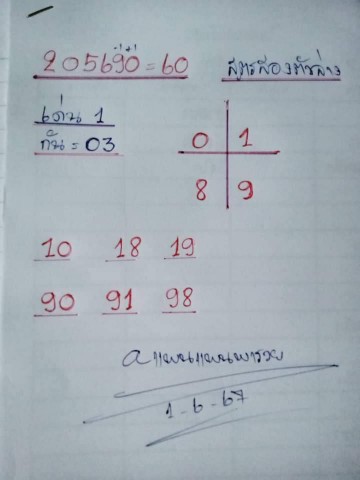 205690 = 60 สูตรสองตัวล่าง
เด่น 1
กัน = 03
0 1
8 9
10 18 19
90 91 98
1-6-67